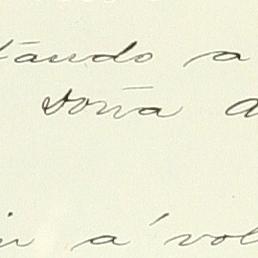 tando a
Doña a
in a' vol